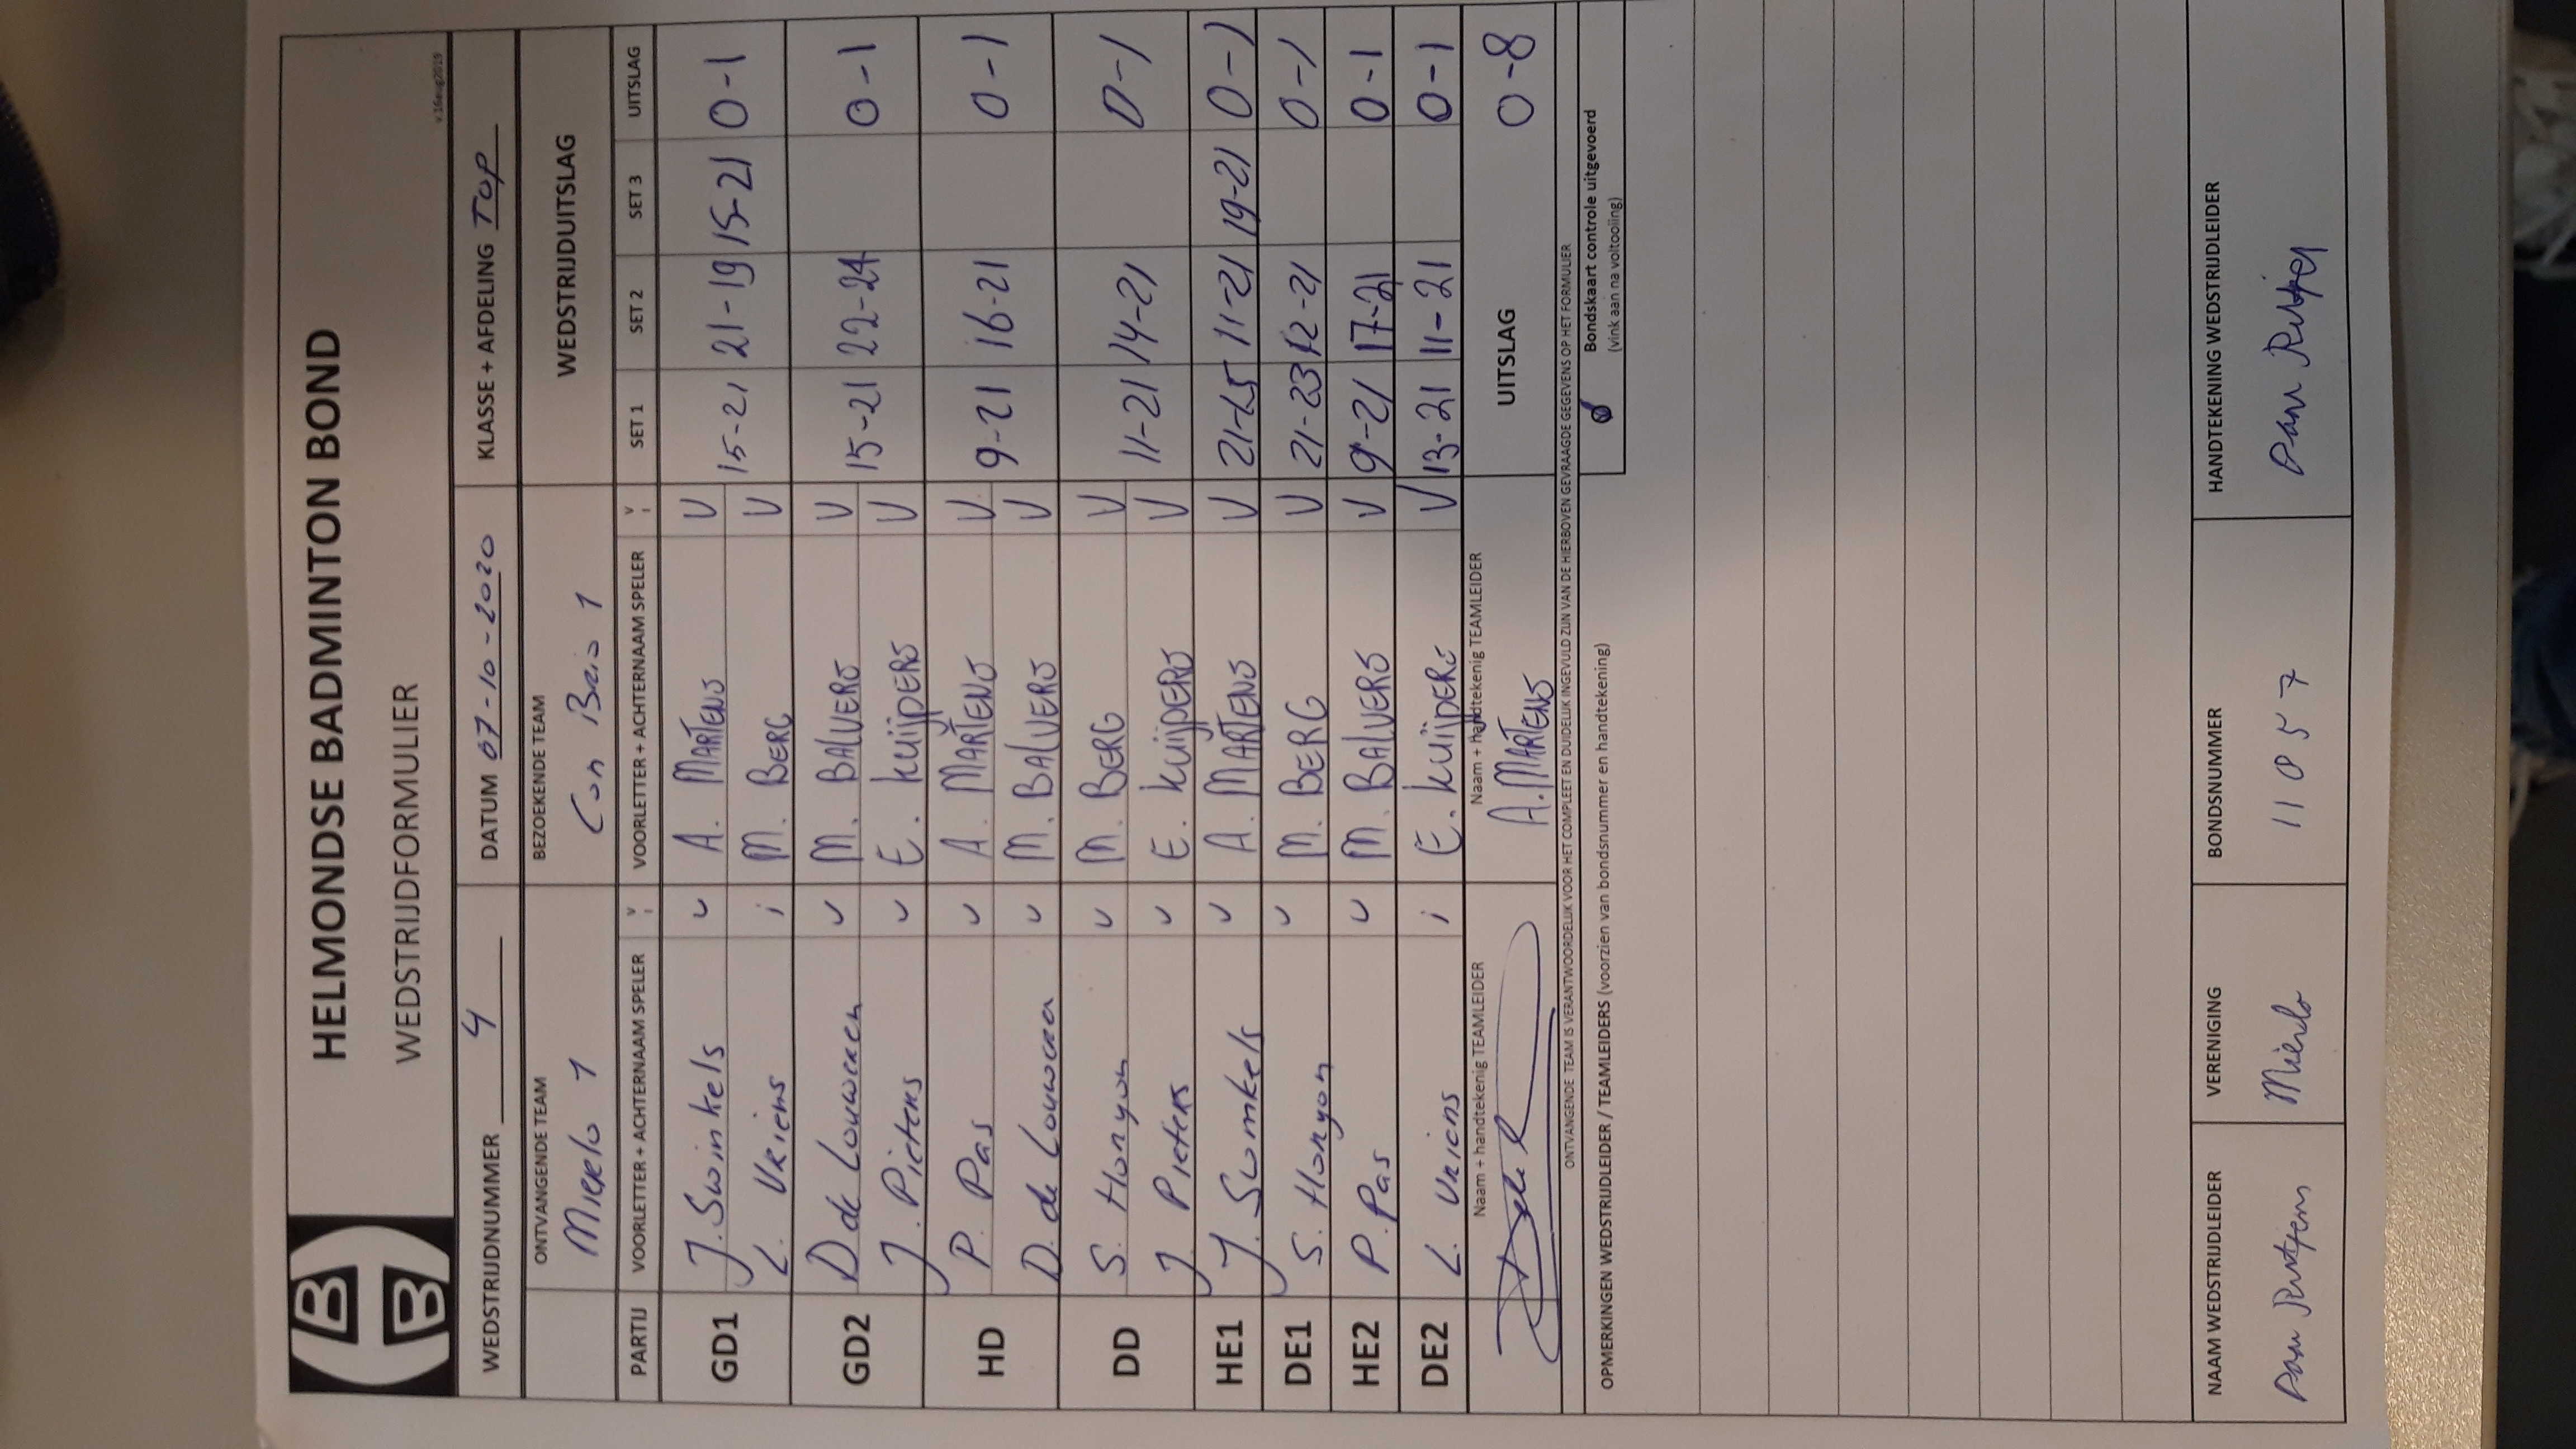 HELMONDSE BADMINTON BOND
WEDSTRIJDFORMULIER
v.16aug2019
WEDSTRIJDNUMMER 4 DATUM 07-10-2020 KLASSE + AFDELING TOP
ONTVANGENDE TEAM BEZOEKENDE TEAM WEDSTRIJDUITSLAG
Mierlo 1 Con Brio 1
PARTIJ VOORLETTER + ACHTERNAAM SPELER V i VOORLETTER + ACHTERNAAM SPELER V i SET 1 SET 2 SET 3 UITSLAG
GD1 J. Swinkels v A. MARTENS V 15-21 21-19 15-21 0-1
L. Vriens i M. BERG V
GD2 D de Louweren v M. BALVERS V 15-21 22-24 0-1
J. Pieters v E. KUIJPERS V
HD P. Pas v A. MARTENS V 9-21 16-21 0-1
D. de Louweren v M. BALVERS V
DD S. Honyon v M. BERG V 11-21 14-21 0-1
J. Pieters v E. KUIJPERS V
HE1 J. Swinkels v A. MARTENS V 21-15 11-21 19-21 0-1
DE1 S. Honyon v M. BERG V 21-23 12-21 0-1
HE2 P. Pas v M. BALVERS V 9-21 17-21 0-1
DE2 L. Vriens i E. KUIJPERS V 13-21 11-21 0-1
Naam + handtekenig TEAMLEIDER Naam + handtekenig TEAMLEIDER UITSLAG 0-8
A. MARTENS
ONTVANGENDE TEAM IS VERANTWOORDELIJK VOOR HET COMPLEET EN DUIDELIJK INGEVULD ZIJN VAN DE HIERBOVEN GEVRAAGDE GEGEVENS OP HET FORMULIER
OPMERKINGEN WEDSTRIJDLEIDER / TEAMLEIDERS (voorzien van bondsnummer en handtekening) Bondskaart controle uitgevoerd
(vink aan na voltooiing)
NAAM WEDSTRIJDLEIDER VERENIGING BONDSNUMMER HANDTEKENING WEDSTRIJDLEIDER
Mierlo 11057